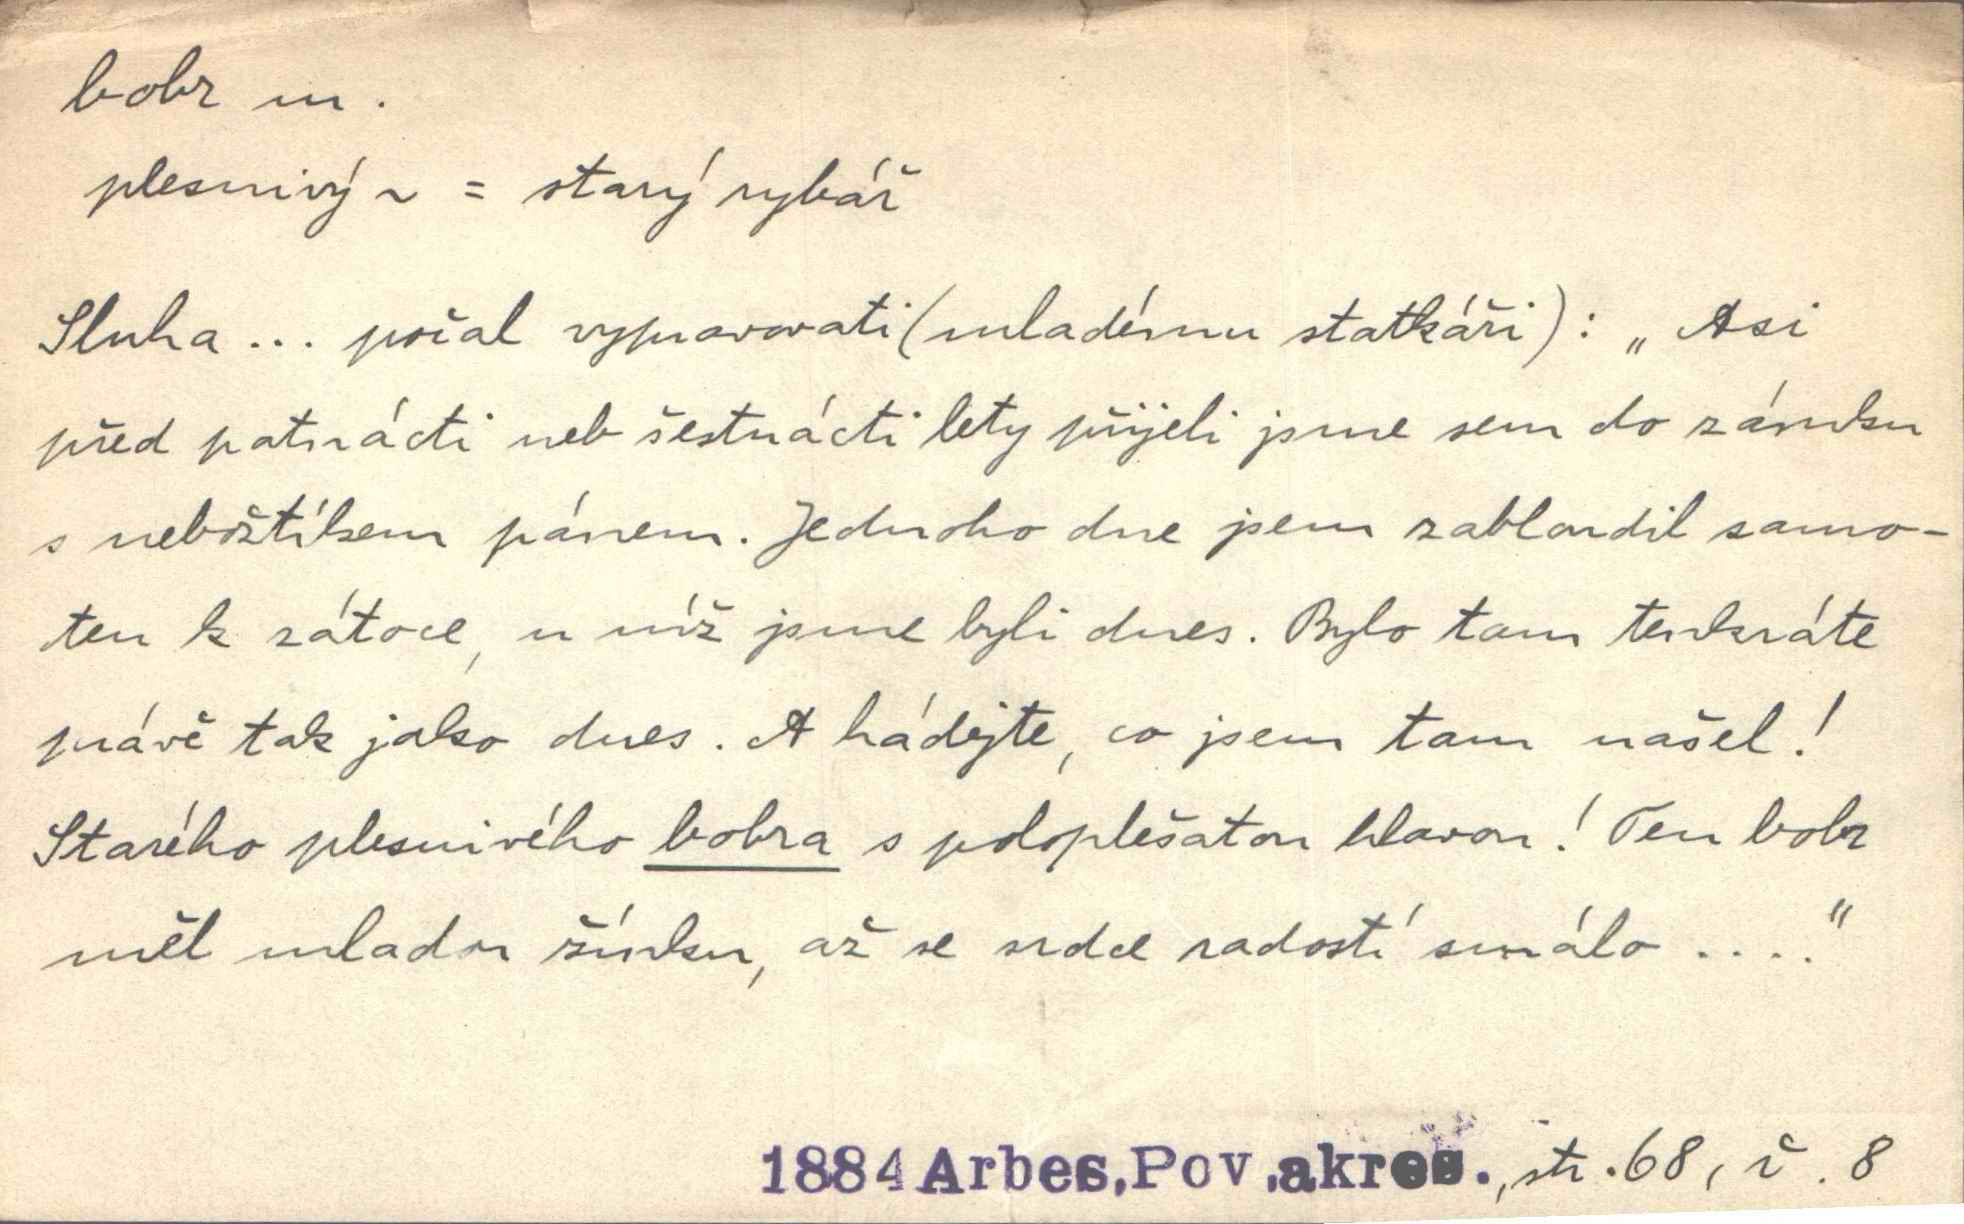 bobr m.
plesnivý ~ = starý rybář
Sluha ... počal vypravovati (mladému statkáři): „Asi
před patnácti neb šestnácti lety přijeli jsme sem do zámku
s nebožtíkem pánem. Jednoho dne jsem zabloudil samo-
ten k zátoce, u níž jsme byli dnes. Bylo tam tenkráte
právě tak jako dnes. A hádejte, co jsem tam našel!
Starého plesnivého bobra s poloplešatou hlavou! Ten bobr
měl mladou žínku, až se srdce radostí smálo ...."
1884 Arbes, Pov. a kres., str. 68, ř. 8